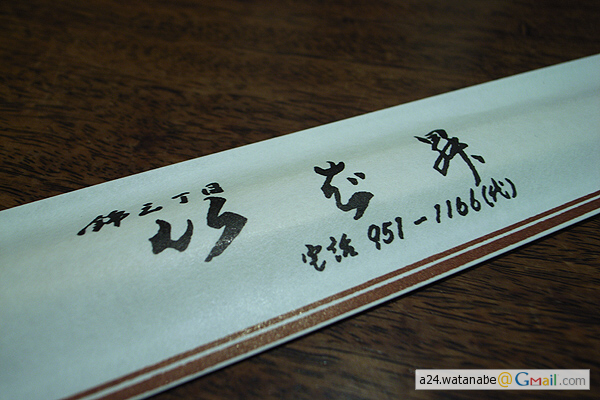 錦三丁目
いば昇
電話 951-1166(代)
a24.watanabe@Gmail.com